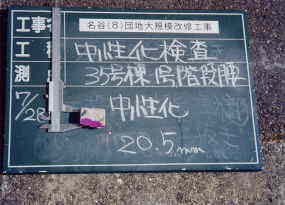 工事名 名谷(8)団地大規模改修工事
工種 中性化検査
測 35号棟 号階段腰
7/28 中性化
20.5mm